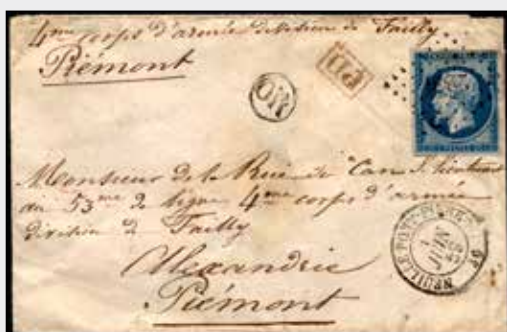 4me corps d'armée division de Failly
Piémont
PD
OR
Monsieur de la Rue de Can S. lieutenant
au 53me 2 ligne 4me corps d'armée
division de Failly
Alexandrie
Piémont
NEUILLE PONT-PIERRE
JUIN
59